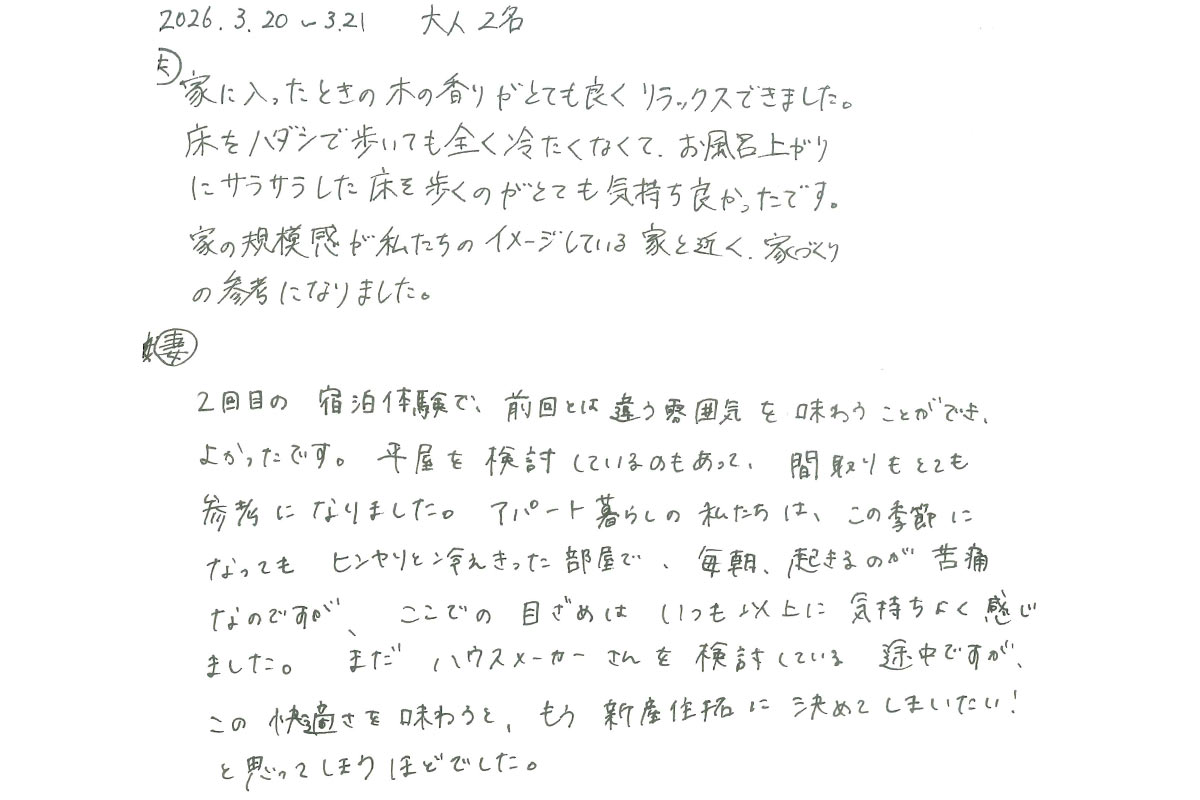 2026.3.20～3.21 大人2名
夫
家に入ったときの木の香りがとても良くリラックスできました。
床をハダシで歩いても全く冷たくなくて、お風呂上がり
にサラサラした床を歩くのがとても気持ち良かったです。
家の規模感が私たちのイメージしている家と近く、家づくり
の参考になりました。
妻
2回目の宿泊体験で、前回とは違う雰囲気を味わうことができ、
よかったです。平屋を検討しているのもあって、間取りもとても
参考になりました。アパート暮らしの私たちは、この季節に
なってもヒンヤリと冷えきった部屋で、毎朝、起きるのが苦痛
なのですが、ここでの目ざめはいつも以上に気持ちよく感じ
ました。まだハウスメーカーさんを検討している途中ですが、
この快適さを味わうと、もう新産住拓に決めてしまいたい！
と思ってしまうほどでした。